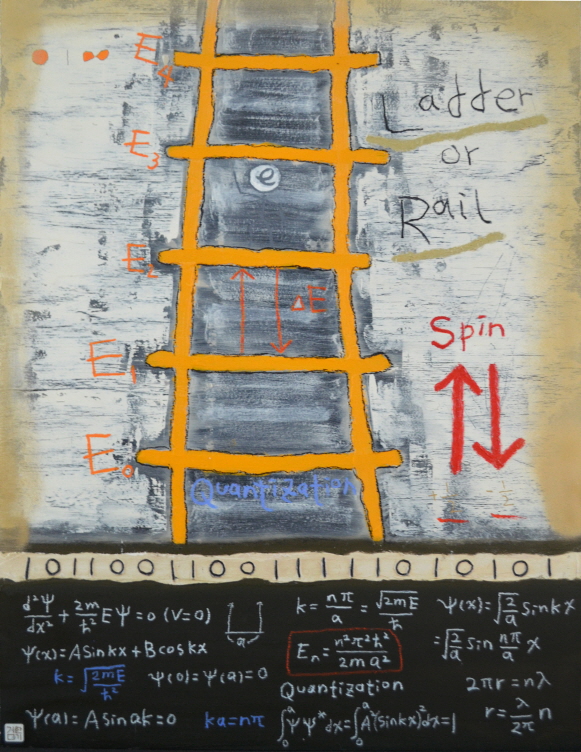 E₄
Ladder
or
Rail
E₃
e
E₂
ΔE
Spin
E₁
E₀
Quantization
1011001100111110101 01
d²Ψ/dx² + 2m/ħ² EΨ = 0 (V=0)
a
Ψ(x) = A sin kx + B cos kx
k = √(2mE/ħ²) Ψ(0) = Ψ(a) = 0
Ψ(a) = A sin ak = 0 ka = nπ
k = nπ/a = √2mE/ħ
Eₙ = n²π²ħ²/2ma²
Quantization
∫₀ᵃ ΨΨ* dx = ∫₀ᵃ A²(sin kx)² dx = 1
Ψ(x) = √(2/a) sin kx
= √(2/a) sin nπ/a x
2πr = nλ
r = λ/2π n